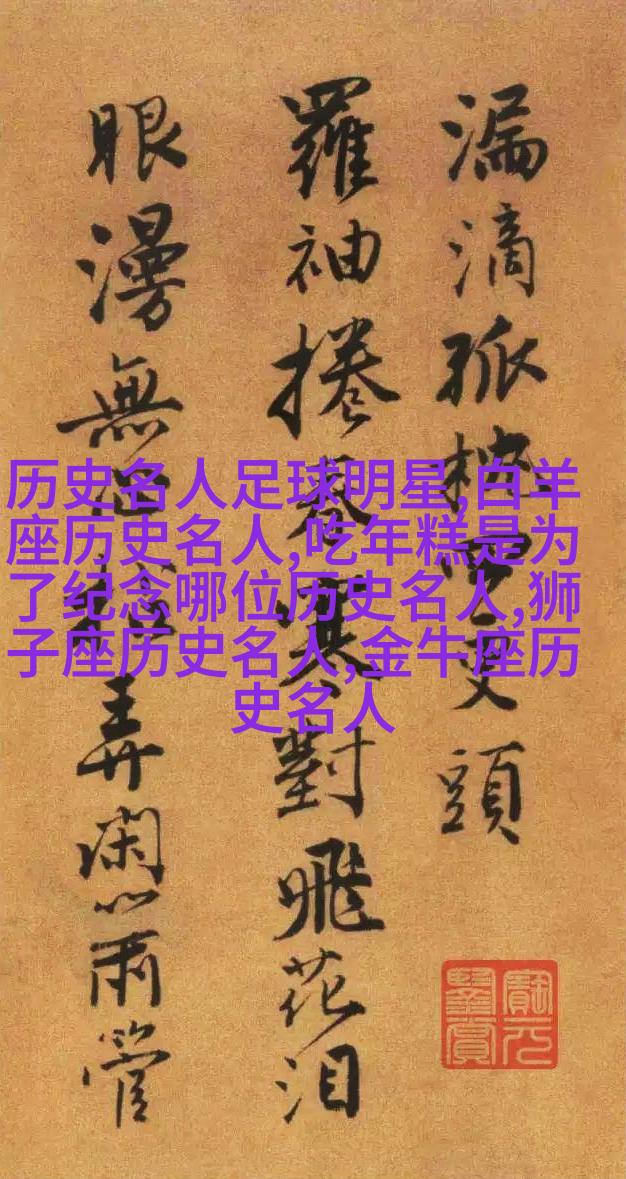 漏滴孤更頭
羅袖捲春寒對飛花泪
眼漫無弄閑心兩管
历史名人足球明星,白羊
座历史名人,吃年糕是为
了纪念哪位历史名人,狮
子座历史名人,金牛座历
史名人